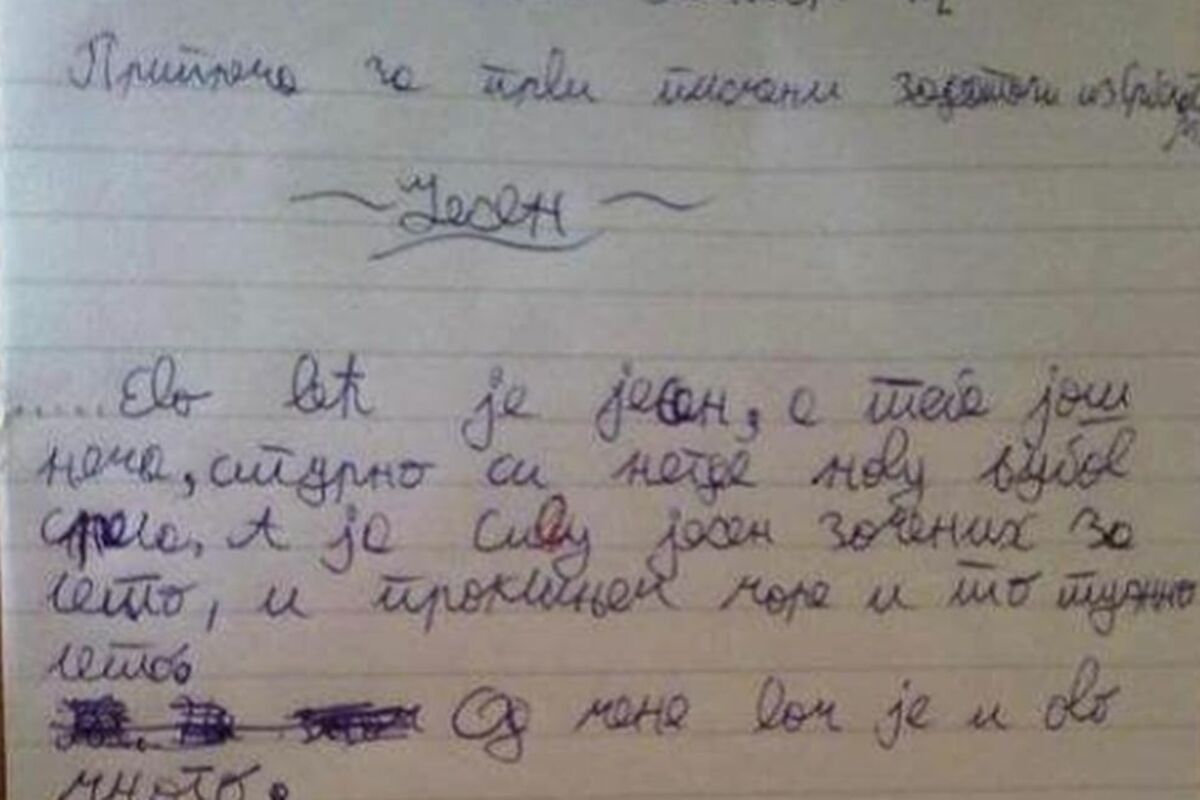 Припрема за први писмени задатак из српског
Јесен
.....Ево већ је јесен, а тебе још
нема, сигурно си негде нову љубов
срела. А ја сиву јесен замених за
лето, и проклињем море и то тужно
лето.
Од мене вам је и ово
много.